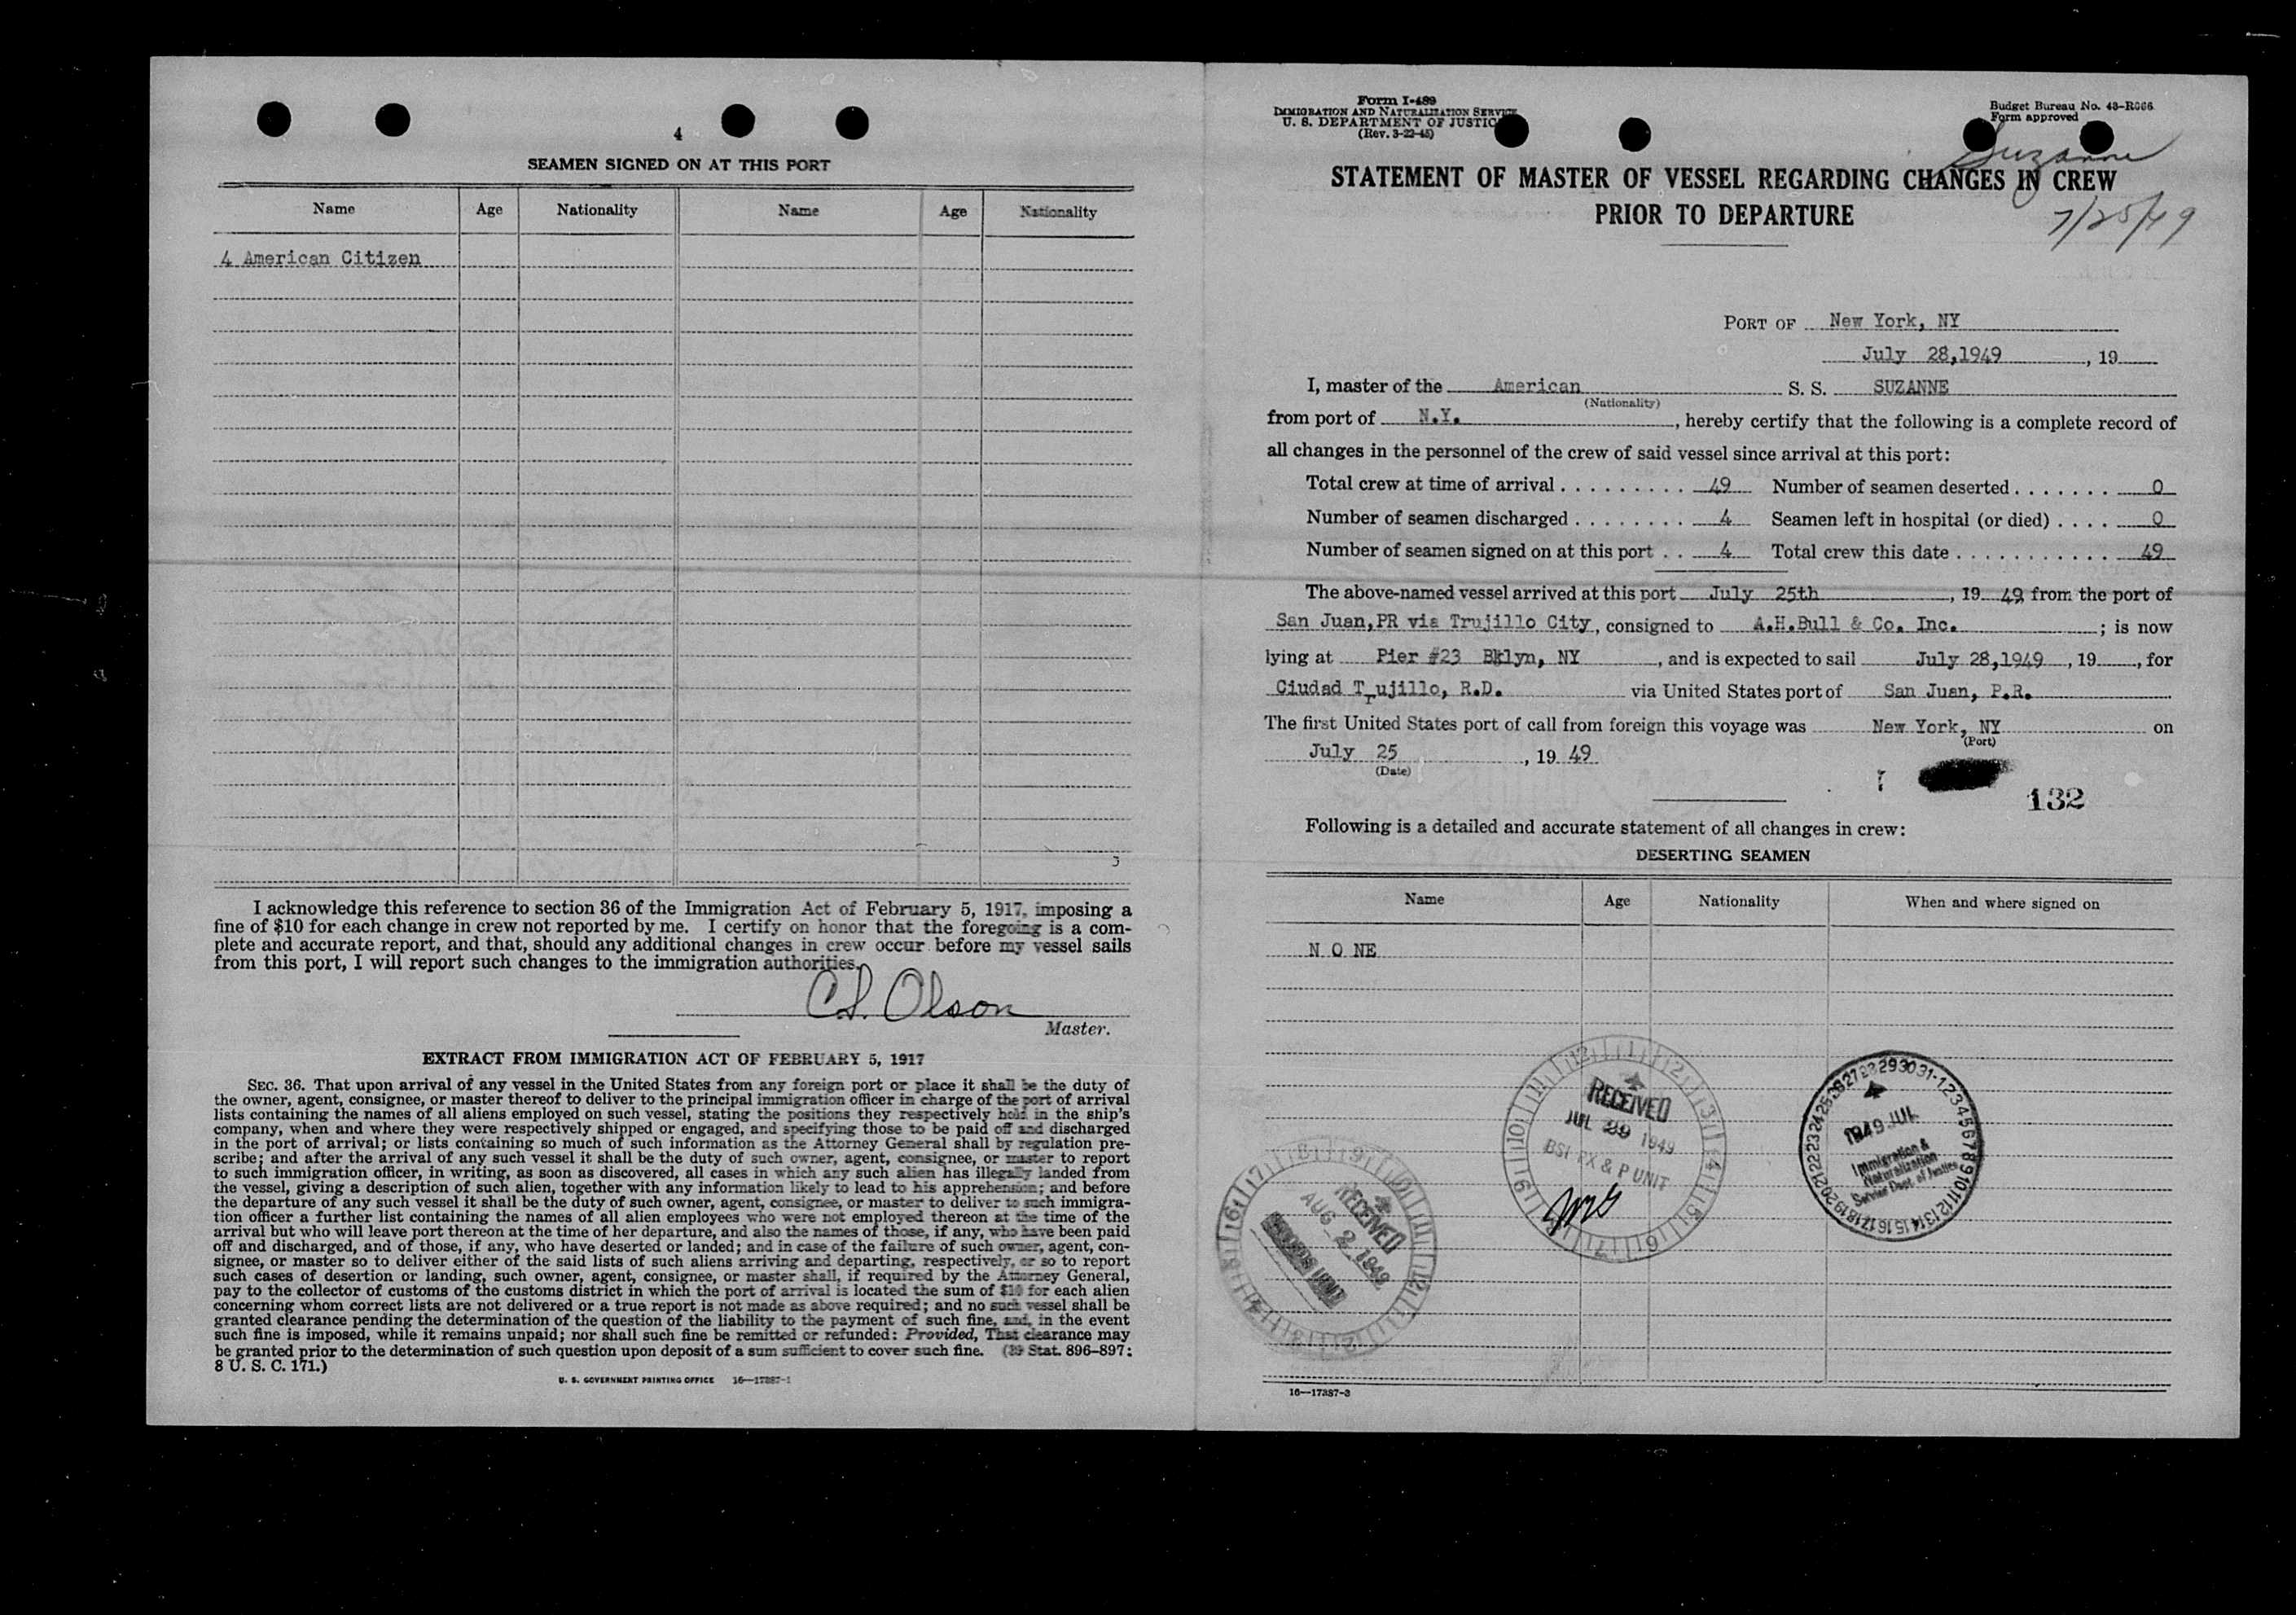 4
SEAMEN SIGNED ON AT THIS PORT
Name Age Nationality Name Age Nationality
4 American Citizen
I acknowledge this reference to section 36 of the Immigration Act of February 5, 1917, imposing a
fine of $10 for each change in crew not reported by me. I certify on honor that the foregoing is a com-
plete and accurate report, and that, should any additional changes in crew occur before my vessel sails
from this port, I will report such changes to the immigration authorities.
C.S. Olson
Master.
EXTRACT FROM IMMIGRATION ACT OF FEBRUARY 5, 1917
SEC. 36. That upon arrival of any vessel in the United States from any foreign port or place it shall be the duty of
the owner, agent, consignee, or master thereof to deliver to the principal immigration officer in charge of the port of arrival
lists containing the names of all aliens employed on such vessel, stating the positions they respectively hold in the ship's
company, when and where they were respectively shipped or engaged, and specifying those to be paid off and discharged
in the port of arrival; or lists containing so much of such information as the Attorney General shall by regulation pre-
scribe; and after the arrival of any such vessel it shall be the duty of such owner, agent, consignee, or master to report
to such immigration officer, in writing, as soon as discovered, all cases in which any such alien has illegally landed from
the vessel, giving a description of such alien, together with any information likely to lead to his apprehension; and before
the departure of any such vessel it shall be the duty of such owner, agent, consignee, or master to deliver to such immigra-
tion officer a further list containing the names of all alien employees who were not employed thereon at the time of the
arrival but who will leave port thereon at the time of her departure, and also the names of those, if any, who have been paid
off and discharged, and of those, if any, who have deserted or landed; and in case of the failure of such owner, agent, con-
signee, or master so to deliver either of the said lists of such aliens arriving and departing, respectively, or so to report
such cases of desertion or landing, such owner, agent, consignee, or master shall, if required by the Attorney General,
pay to the collector of customs of the customs district in which the port of arrival is located the sum of $10 for each alien
concerning whom correct lists are not delivered or a true report is not made as above required; and no such vessel shall be
granted clearance pending the determination of the question of the liability to the payment of such fine, and, in the event
such fine is imposed, while it remains unpaid; nor shall such fine be remitted or refunded: Provided, That clearance may
be granted prior to the determination of such question upon deposit of a sum sufficient to cover such fine. (39 Stat. 896-897;
8 U. S. C. 171.)
U. S. GOVERNMENT PRINTING OFFICE 16—17387-1
Form I-489
IMMIGRATION AND NATURALIZATION SERVICE
U. S. DEPARTMENT OF JUSTICE
(Rev. 3-22-45)
Budget Bureau No. 43-R066
Form approved
Suzanne
STATEMENT OF MASTER OF VESSEL REGARDING CHANGES IN CREW
PRIOR TO DEPARTURE
7/25/49
PORT OF New York, NY
July 28,1949, 19
I, master of the American S. S. SUZANNE
(Nationality)
from port of N.Y., hereby certify that the following is a complete record of
all changes in the personnel of the crew of said vessel since arrival at this port:
Total crew at time of arrival 49 Number of seamen deserted 0
Number of seamen discharged 4 Seamen left in hospital (or died) 0
Number of seamen signed on at this port 4 Total crew this date 49
The above-named vessel arrived at this port July 25th, 19 49 from the port of
San Juan,PR via Trujillo City, consigned to A.H.Bull & Co. Inc.; is now
lying at Pier #23 Bklyn, NY, and is expected to sail July 28,1949, 19, for
Ciudad Trujillo, R.D. via United States port of San Juan, P.R.
The first United States port of call from foreign this voyage was New York, NY on
(Port)
July 25, 19 49
(Date)
132
Following is a detailed and accurate statement of all changes in crew:
DESERTING SEAMEN
Name Age Nationality When and where signed on
N O NE
RECEIVED
JUL 29 1949
BSI PX & P UNIT
1949 JUL
Immigration &
Naturalization
Service Dept. of Justice
RECEIVED
AUG 2 1949
RECORDS UNIT
16—17387-3